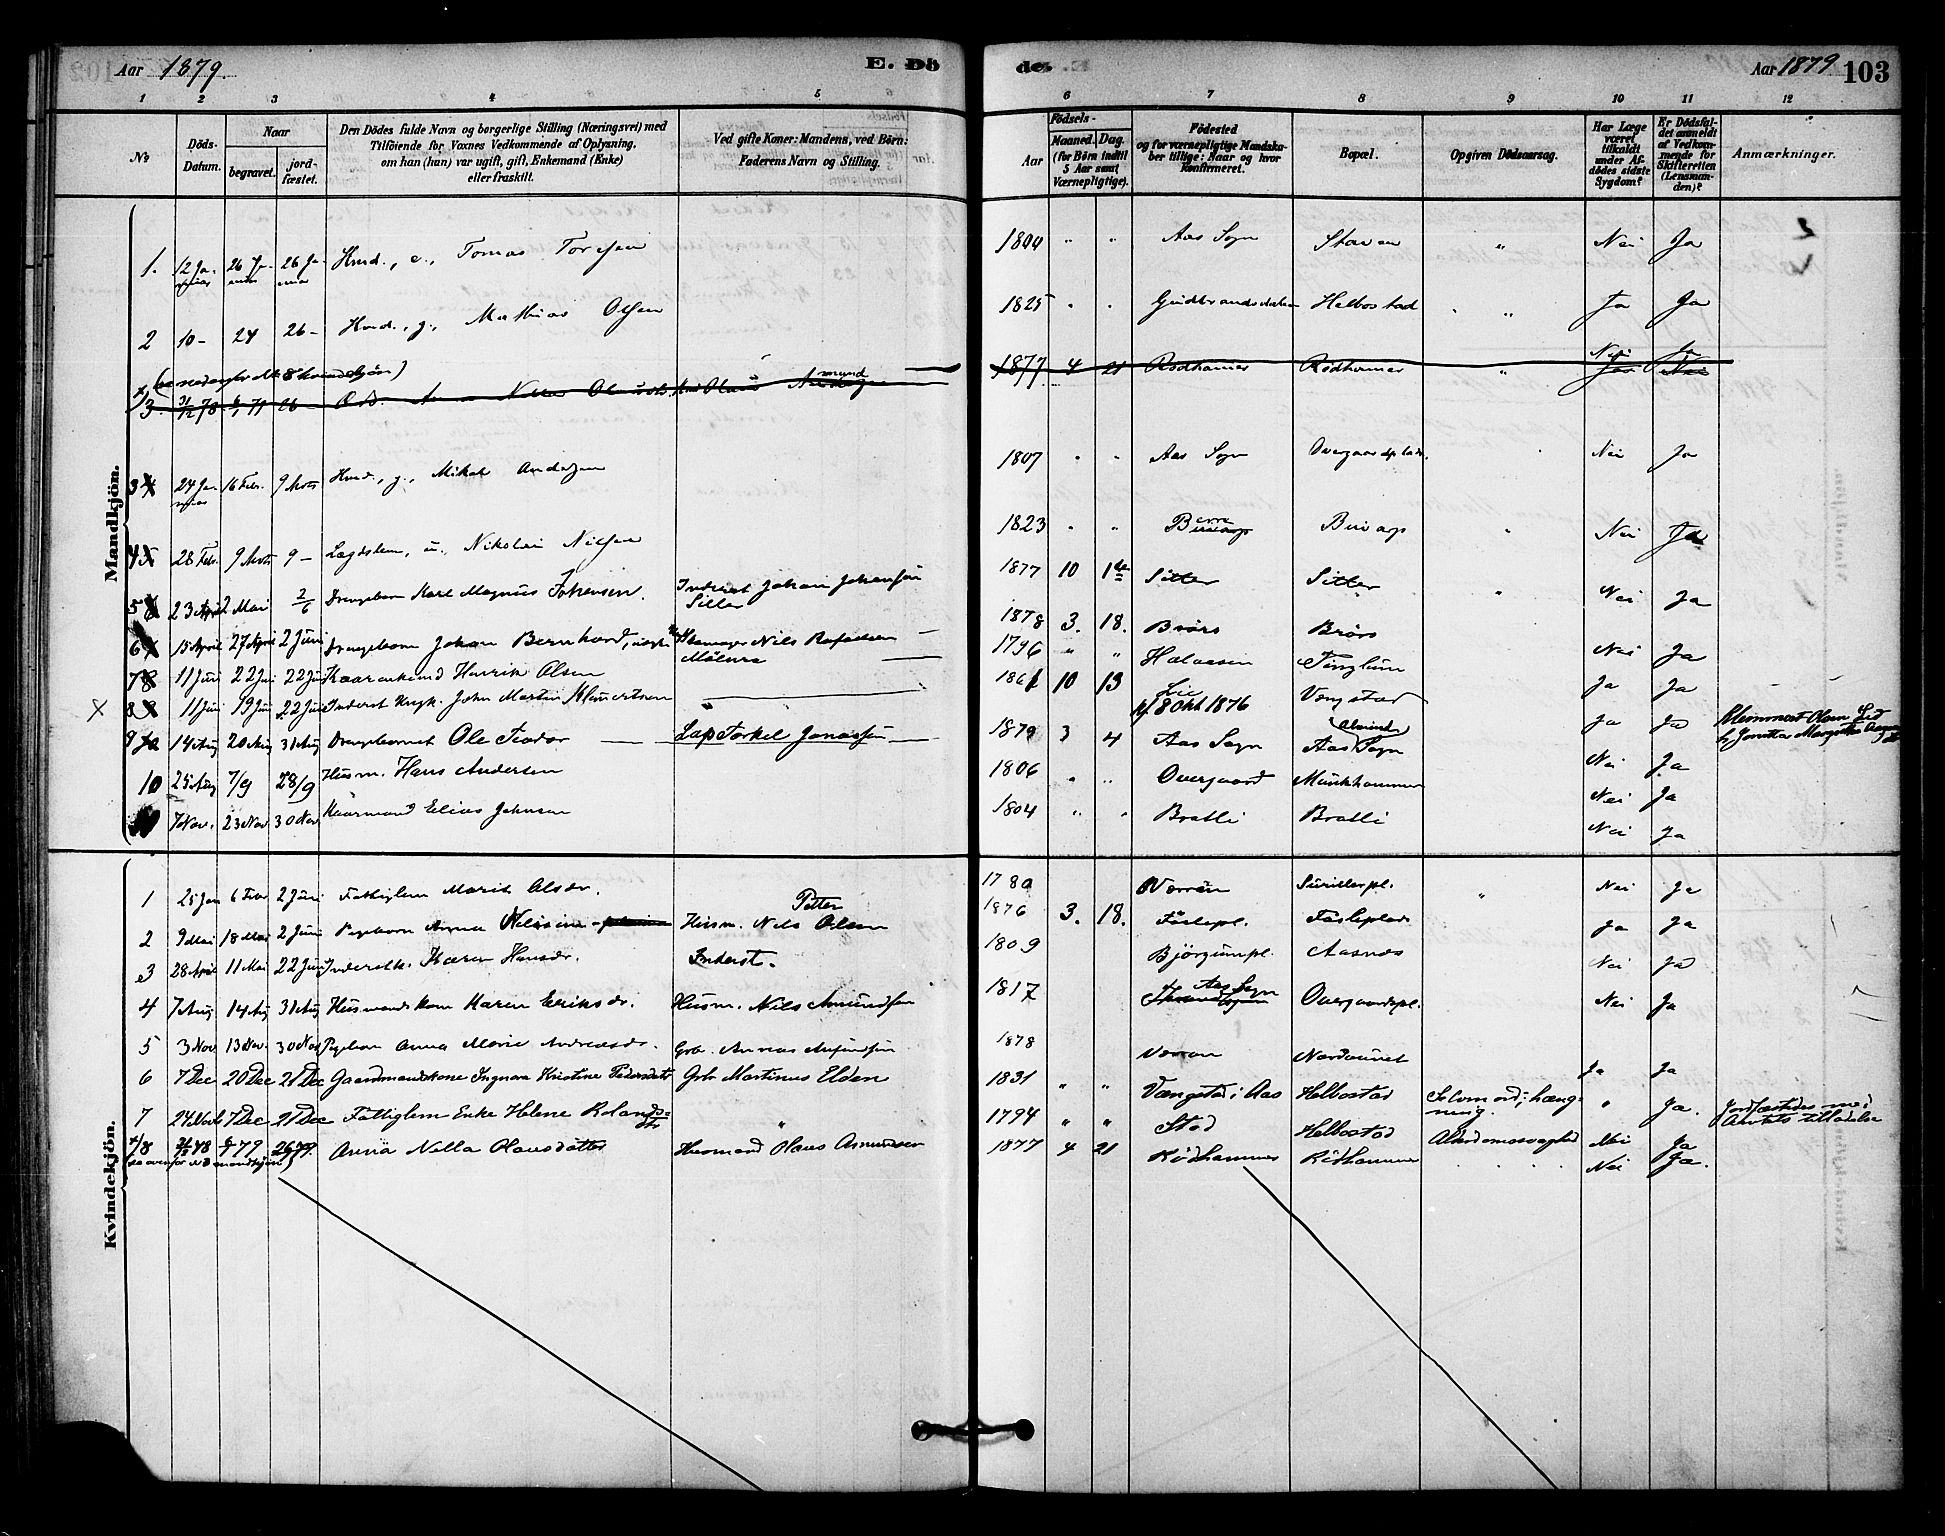 Aar 1879. E. Dö
de. Aar 1879 103
1 2 3 4 5
6 7 8 9 10 11 12
No Döds-Datum. Naar begravet. jordfæstet. Den Dödes fulde Navn og borgerlige Stilling (Næringsvei) med Tilföiende for Voxnes Vedkommende af Oplysning, om han (hun) var ugift, gift, Enkemand (Enke) eller fraskilt. Ved gifte Koner: Mandens, ved Börn: Faderens Navn og Stilling.
Födsels- Aar Maaned. Dag. (for Börn indtil 5 Aar samt Værnepligtige). Födested og for værnepligtige Mandskaber tillige: Naar og hvor Konfirmeret. Bopæl. Opgiven Dödsaarsag. Har Læge været tilkaldt under Afdödes sidste Sygdom? Er Dödsfaldet anmeldt af Vedkommende for Skifteretten (Lensmanden)? Anmærkninger.
Mandkjön.
1. 12 Januar 26 Januar 26 Januar Husmd., e., Tomas Torsen 1804 " " Aas Sogn Staven " Nei Ja
2 10- 24 26- Husmd., g., Mathias Olsen 1825 " " Gudbrandsdalen Helbostad " Ja Ja
(se nedenfor No 8 kvindekjön)
3. 31/12 78 6/1 79 26- Nella Olausdtr. Olaus Asmund 1877 4 21 Rödhamer Rödhamer Nei Ja
3 24 Januar 16 Febr. 9 Marts Husmd., g., Mikal Andersen 1807 " " Aas Sogn Overgaardsplads. Nei Ja
4 28 Febr. 9 Marts 9 - Lægdslem, u., Nikolai Nilsen 1823 " " Burarp " Nei Ja
5 23 April 2 Mai 2/6 Drengebarn Karl Magnus Johansen. Inderst Johan Johansen Sitter 1877 10 1ste Sitter Sitter " Nei Ja
6 15 April 27 April 2 Juni Drengebarn Johan Bernhard, Nils Rafaelsen 1878 3. 18. Brörs Brörs Nei Ja
7 11 Juni 22 Juni 22 Juni Kaarenkemd Henrik Olsen 1796 " " Halaasen Tinglum Ja Ja
8 11 Juni 19 Juni 22 Juni Inderst Ungk. John Martin Klemertsen 1861 10 13 Lie kf 8 Okt 1876 Vengstad Ja Ja Klemmet Olsen Lid
9 14 Aug 20 Aug 31 Aug Drengebarnet Ole Teodor Lap Torkel Jonassen 1879 3 4 Aas Sogn Aas Sogn Nei Ja
10 25 Aug 7/9 28/9 Husm. Hans Andersen 1806 " " Overgaard Munkhammer Nei Ja
7 Nov. 23 Nov 30 Nov Kaarmand Elias Johnsen 1804 " " Bratli Bratli Nei Ja
Kvindekjön.
1 25 Jan 6 Febr 2 Juni Fattiglem Marit Olsdr. 1780 Værren " Nei Ja
2 9 Mai 18 Mai 2 Juni Pigebarn Anna Nilsine Husm. Nils Petter Olsen 1876 3. 18. Föslepl. Fösleplads Ja Ja
3 28 April 11 Mai 22 Juni Inderstk. Karen Hansdr. Inderst. 1809 Bjørgumpl. Aasnes Nei Ja
4 7 Aug 14 Aug 31 Aug Husmandskone Karen Eriksdr. Husm. Nils Amundsen 1817 Aas Sogn Overgaardspl. Nei Ja
5 3 Nov 13 Nov. 30 Nov Pigebarn Anna Marie Andreasdr. Grb. 1878 Værran Nordaunet Ja Ja
6 7 Dec 20 Dec 21 Dec Gaardmandskone Ingvora Kristine Pedersdatt Grbr Martinus Elden 1831 " " Vængstad i Aas Helbostad Selvmord; hængning. " Ja. Jordfæstedes med Amtets tilladelse
7 24 Novb 7 Dec 21 Dec Fattiglem Enke Helene Rolandsdtr " 1794 " " Stod Helbostad Alderdomssvaghed Nei Ja
8 31/12 78 6/1 79 26/1 79. Anna Nella Olausdatter Husmand Olaus Asmundsen 1877 4 21 Rödhammer Rödhammer Nei Ja.
se ovenfor No 3 mandkjön